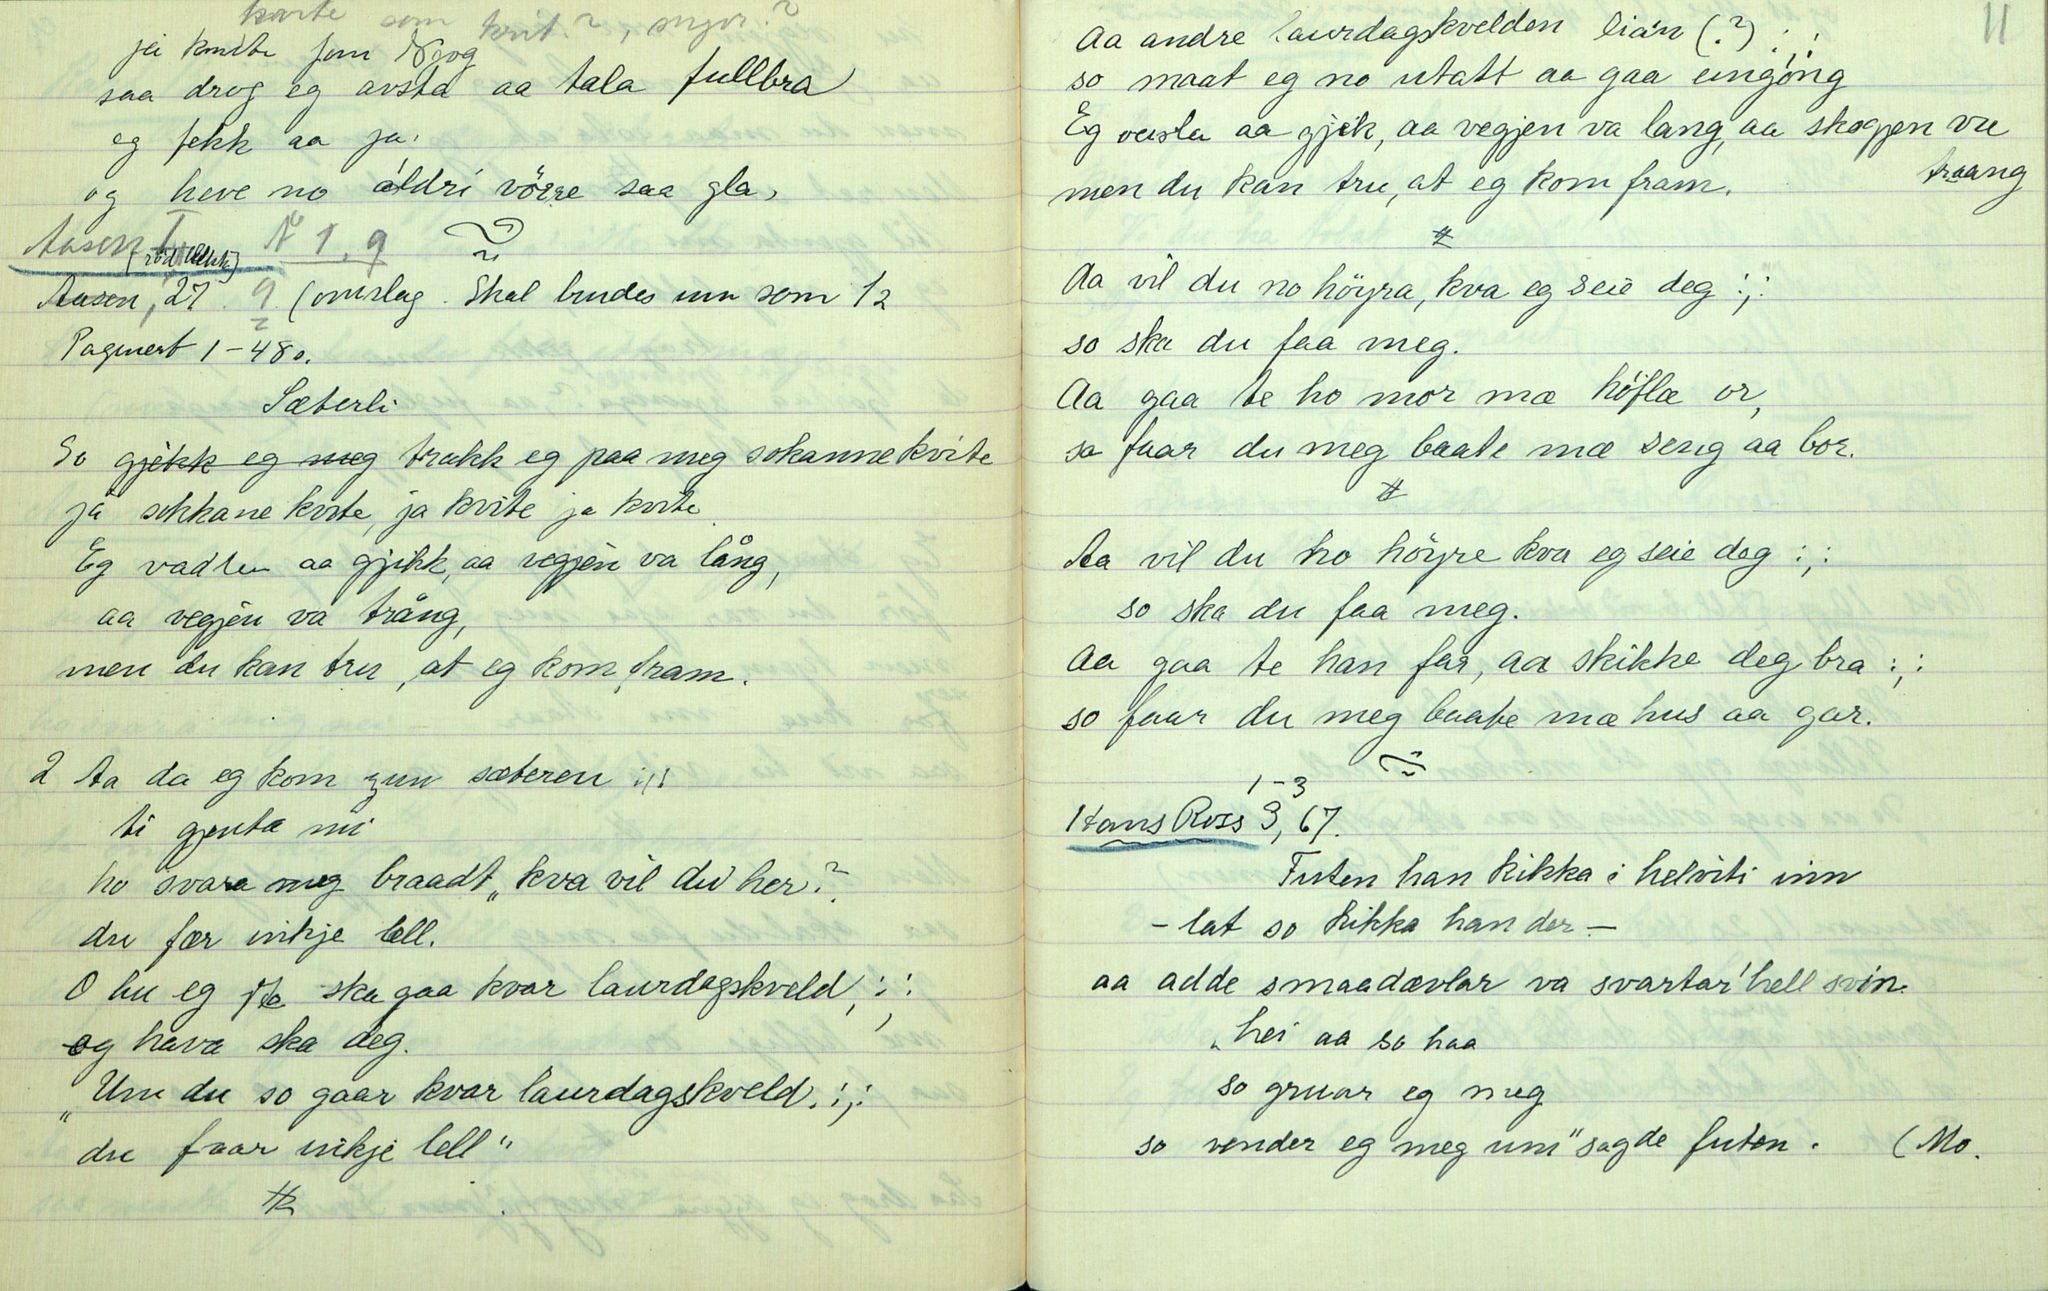 karte som krit?, snjor?
jei knite som Noog
saa drog eg avsta aa tala fullbra
eg fekk aa ja.
og heve no áldri vörre saa gla,
Aasen I N 1. 9
Aasen, 27. 9 (omslag. Skal bindes inn som 12
Paginert 1-480.
Sæterli
So gjekk eg meg trakk eg paa meg sokanne kvite
ja sokkane kvite, ja kvite ja kvite
Eg vadle aa gjikk, aa vegjen va lång,
aa vegjen va trång,
men du kan tru, at eg kom fram.
2 Aa da eg kom sæteren :,:
ti gjenta mi
ho svara meg braadt „kva vil du her?
du fær inkje lell.
O hu eg ska gaa kvar laurdagskveld, :,:
og hava ska deg.
„Um du so gaar kvar laurdagskveld. :,:
du faar inkje lell"
11
Aa andre laurdagskvelden lián (?) :,:
so maat eg no utatt aa gaa eingóng
Eg vasla aa gjek, aa vegjen va lang, aa skogjen va
traang
men du kan tru, at eg kom fram.
Aa vil du no höyra, kva eg seie deg :,:
so ska du faa meg.
Aa gaa te ho mor mæ höfle or,
so faar du meg baate mæ seng aa bor.
Aa vil du ho höyre kva eg seie deg :,:
so ska du faa meg.
Aa gaa te han far, aa skikke deg bra :,:
so faar du meg baate mæ hus aa gar.
1-3
Hans Ross 3, 67.
Futen han kikka i helviti inn
- lat so kikka han der -
aa adde smaadævlar va svartar' hell svin.
„hei aa so haa
so gruar eg meg
so vender eg meg um" sagde futen. (Mo.